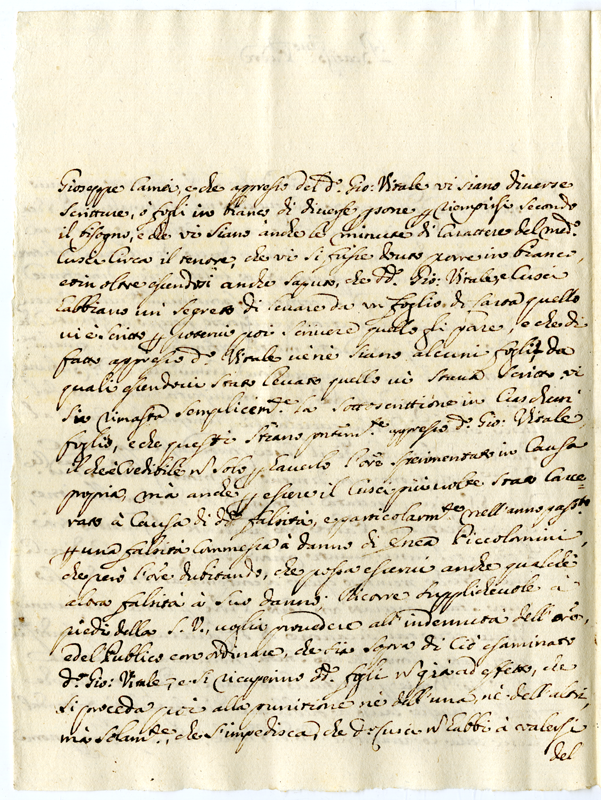 Gioseppe Camei, e che appresso del d.º Gio: Vitale vi siano diverse
scritture, ò fogli in bianco di diverse psone p riempirsi secondo
il bisogno, e che vi siano anche le minute di Carattere del med.º
Cusci circa il tenore, che vi si fusse dovuto porre in bianco,
et in oltre essendosi anche saputo, che dd.i Gio: Vitale, e Cusci
habbiano un segreto di levare da un foglio di carta quello
vi è scritto p potervi poi scrivere quello li pare, e che di
fatto appresso d.º Vitale vene siano alcuni fogli, da
quali essendovi stato levato quello vi stava scritto vi
sia rimasta semplicem.te la sottoscrittione in ciascheun
foglio, e che questi stiano pntem.te appresso d.º Gio: Vitale,
il che è credibile n solo p haverlo l'Ore sperimentato in causa
propria, mà anche p essere il Cusci più volte stato carce=
rato à causa di d.ª falsità, e particolarm.te nell'anno pass.to
p una falsità commessa à danno di Enea Piccolomini,
che però l'Ore dubitando, che possa esservi anche qualche
altra falsità à suo danno; Ricorre supplichevole à
piedi della S. V., voglia provedere all'indennità dell'Ore,
e del Publico con ordinare, che sia sopra di ciò esaminato
d.º Gio: Vitale, e si ricuperino dd.i fogli n già ad effetto, che
si proceda poi alla punitione nè dell'una, nè dell'altri,
mà solam.te, che s'impedisca, che d.º Cusci n habbi à valersi
del